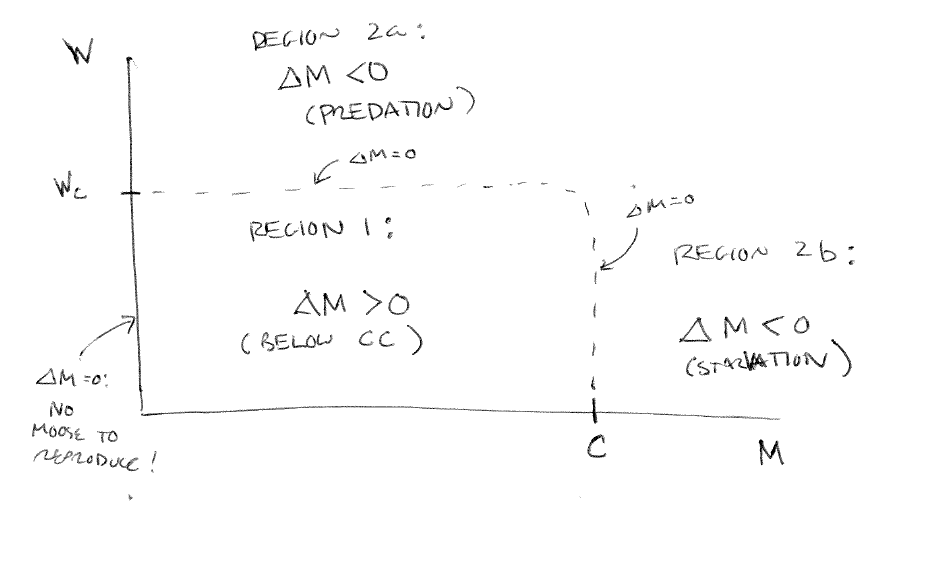 W
REGION 2a:
ΔM <0
(PREDATION)
ΔM=0
Wc
ΔM=0
REGION 1:
REGION 2b:
ΔM >0
(BELOW CC)
ΔM<0
(STARVATION)
ΔM=0:
NO
MOOSE TO
REPRODUCE!
C
M